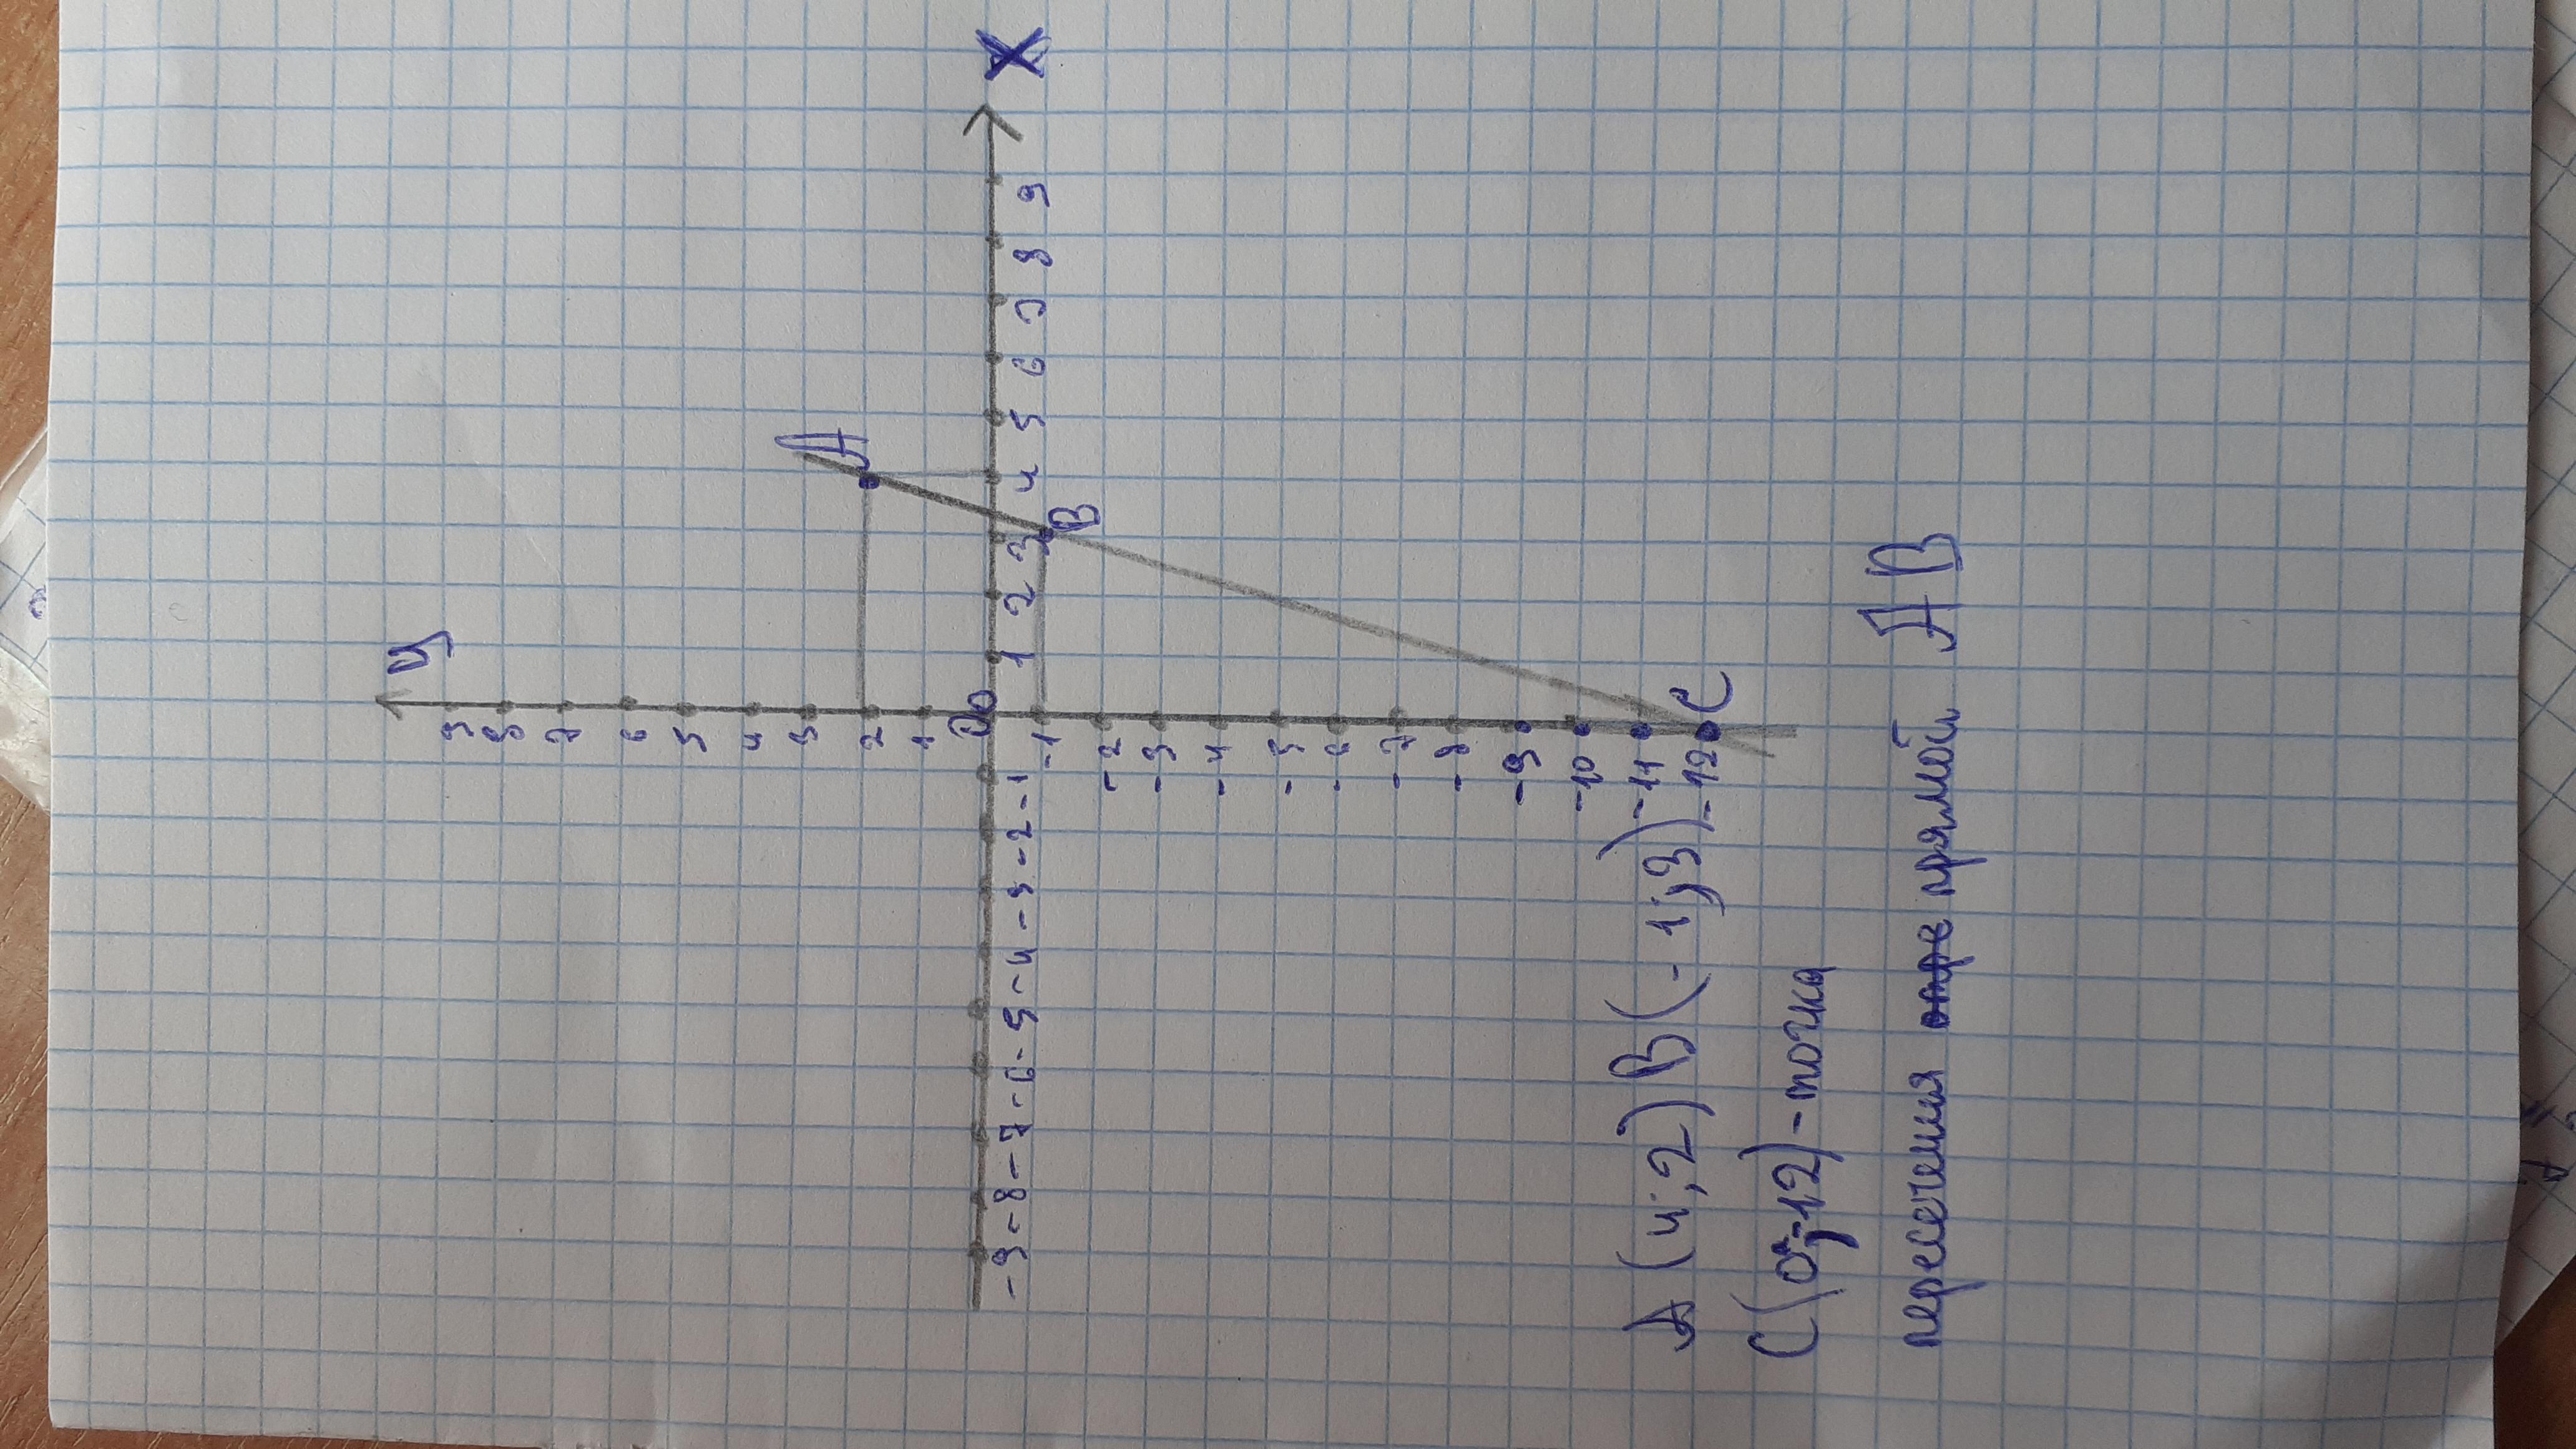 У
9
8
7
6
5
4
3
2
1
0
-9 -8 -7 -6 -5 -4 -3 -2 -1
1 2 3 4 5 6 7 8 9
X
A
B
-1
-2
-3
-4
-5
-6
-7
-8
-9
-10
-11
-12
C
A (4;2) B (-1;3)
C (0;-12) - точка
пересечения прямой AB